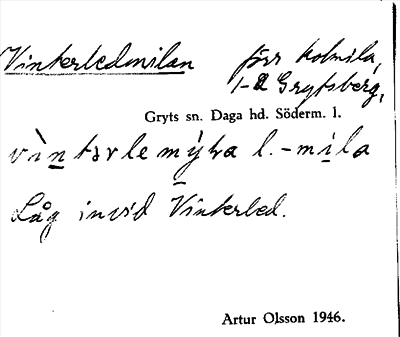 Vinterledmilan förr kolmila,
1-2 Grytsberg,
Gryts sn. Daga hd. Söderm. l.
vìntərle mỳla l. -mila
Låg invid Vinterled.
Artur Olsson 1946.